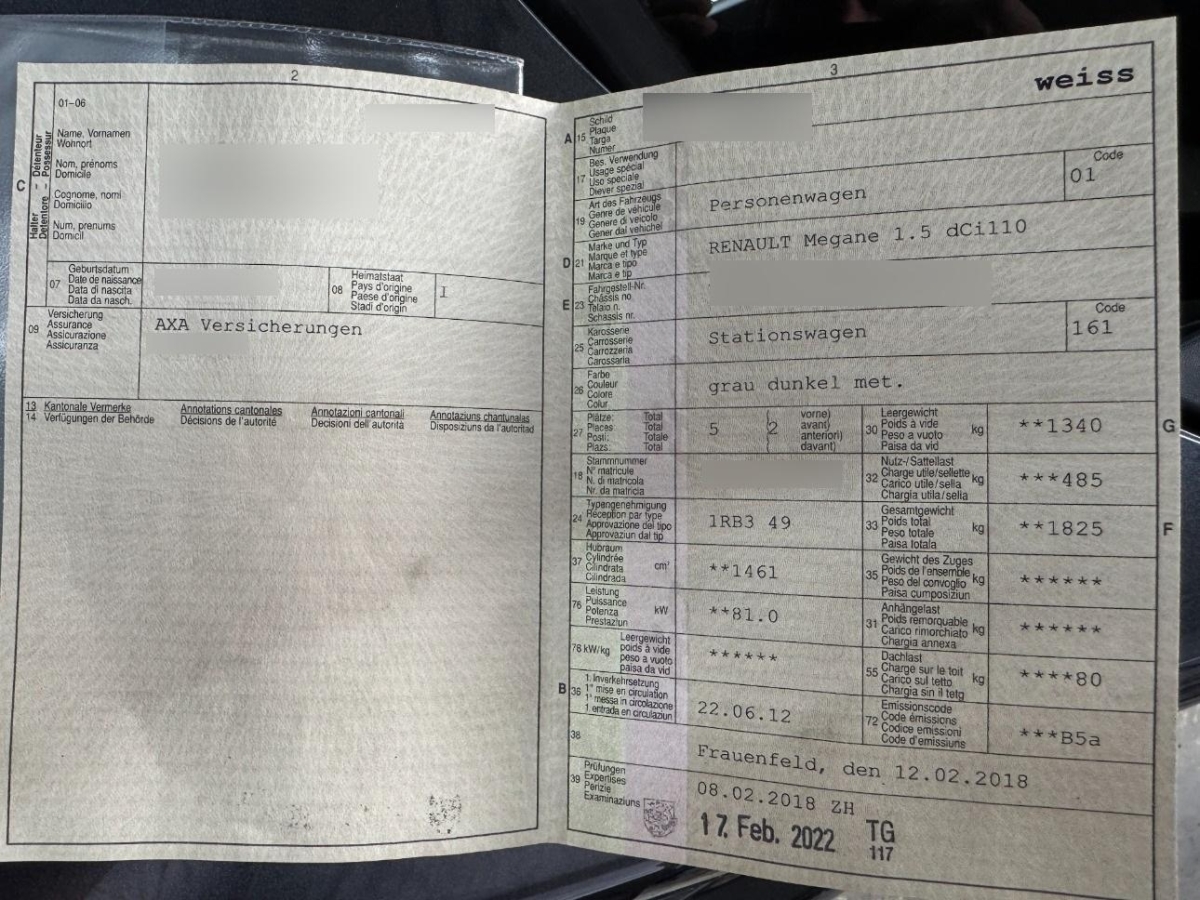 2
01-06
C
Halter - Détenteur
Detentore - Possessur
Name, Vornamen
Wohnort
Nom, prénoms
Domicile
Cognome, nomi
Domicilio
Num, prenums
Domicil
07
Geburtsdatum
Date de naissance
Data di nascita
Data da nasch.
08
Heimatstaat
Pays d'origine
Paese d'origine
Stadi d'origin
I
09
Versicherung
Assurance
Assicurazione
Assicuranza
AXA Versicherungen
13 Kantonale Vermerke Annotations cantonales Annotazioni cantonali Annotaziuns chantunalas
14 Verfügungen der Behörde Décisions de l'autorité Decisioni dell'autorità Disposiziuns da l'autoritad
3
weiss
A 15
Schild
Plaque
Targa
Numer
17
Bes. Verwendung
Usage spécial
Uso speciale
Diever spezial
19
Art des Fahrzeugs
Genre de véhicule
Genere di veicolo
Gener dal vehichel
Personenwagen
Code
01
D 21
Marke und Typ
Marque et type
Marca e tipo
Marca e tip
RENAULT Megane 1.5 dCi110
E 23
Fahrgestell-Nr.
Châssis no
Telaio n.
Schassis nr.
25
Karosserie
Carrosserie
Carrozzeria
Carossaria
Stationswagen
Code
161
26
Farbe
Couleur
Colore
Colur
grau dunkel met.
27
Plätze: Total
Places: Total
Posti: Totale
Plazs: Total
5 2
vorne)
avant)
anteriori)
davant)
30
Leergewicht
Poids à vide
Peso a vuoto
Paisa da vid
kg
**1340
G
18
Stammnummer
N° matricule
N. di matricola
Nr. da matricla
32
Nutz-/Sattellast
Charge utile/sellette
Carico utile/sella
Chargia utila/sella
kg
***485
24
Typengenehmigung
Réception par type
Approvazione del tipo
Approvaziun dal tip
1RB3 49
33
Gesamtgewicht
Poids total
Peso totale
Paisa totala
kg
**1825
F
37
Hubraum
Cylindrée
Cilindrata
Cilindrada
cm³
**1461
35
Gewicht des Zuges
Poids de l'ensemble
Peso del convoglio
Paisa cumposiziun
kg
******
76
Leistung
Puissance
Potenza
Prestaziun
kW
**81.0
31
Anhängelast
Poids remorquable
Carico rimorchiato
Chargia annexa
kg
******
78 kW/kg
Leergewicht
poids à vide
peso a vuoto
paisa da vid
******
55
Dachlast
Charge sur le toit
Carico sul tetto
Chargia sin il tetg
kg
****80
B 36
1. Inverkehrsetzung
1re mise en circulation
1a messa in circolazione
1. entrada en circulaziun
22.06.12
72
Emissionscode
Code émissions
Codice emissioni
Code d'emissiuns
***B5a
38
Frauenfeld, den 12.02.2018
39
Prüfungen
Expertises
Perizie
Examinaziuns
08.02.2018 ZH
17. Feb. 2022 TG
117